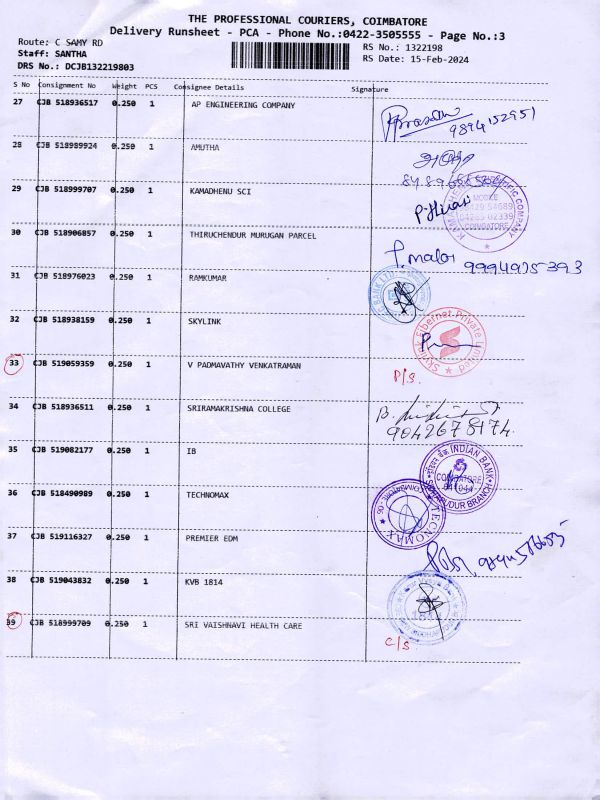 THE PROFESSIONAL COURIERS, COIMBATORE
Delivery Runsheet - PCA - Phone No.:0422-3505555 - Page No.:3
Route: C SAMY RD
RS No.: 1322198
Staff: SANTHA
RS Date: 15-Feb-2024
DRS No.: DCJB132219803
S No Consignment No Weight PCS Consignee Details Signature
27 CJB 518936517 0.250 1 AP ENGINEERING COMPANY
9894152951
28 CJB 518989924 0.250 1 AMUTHA
29 CJB 518999707 0.250 1 KAMADHENU SCI
MOBILE
COIMBATORE
30 CJB 518906857 0.250 1 THIRUCHENDUR MURUGAN PARCEL
9994925393
31 CJB 518976023 0.250 1 RAMKUMAR
32 CJB 518938159 0.250 1 SKYLINK
Skylink Fibernet Private Limited
33 CJB 519059359 0.250 1 V PADMAVATHY VENKATRAMAN
P/S.
34 CJB 518936511 0.250 1 SRIRAMAKRISHNA COLLEGE
9042678174.
35 CJB 519082177 0.250 1 IB
INDIAN BANK
COIMBATORE
641044
36 CJB 518490989 0.250 1 TECHNOMAX
TECNOMAX
37 CJB 519116327 0.250 1 PREMIER EDM
38 CJB 519043832 0.250 1 KVB 1814
39 CJB 518999709 0.250 1 SRI VAISHNAVI HEALTH CARE
C/S